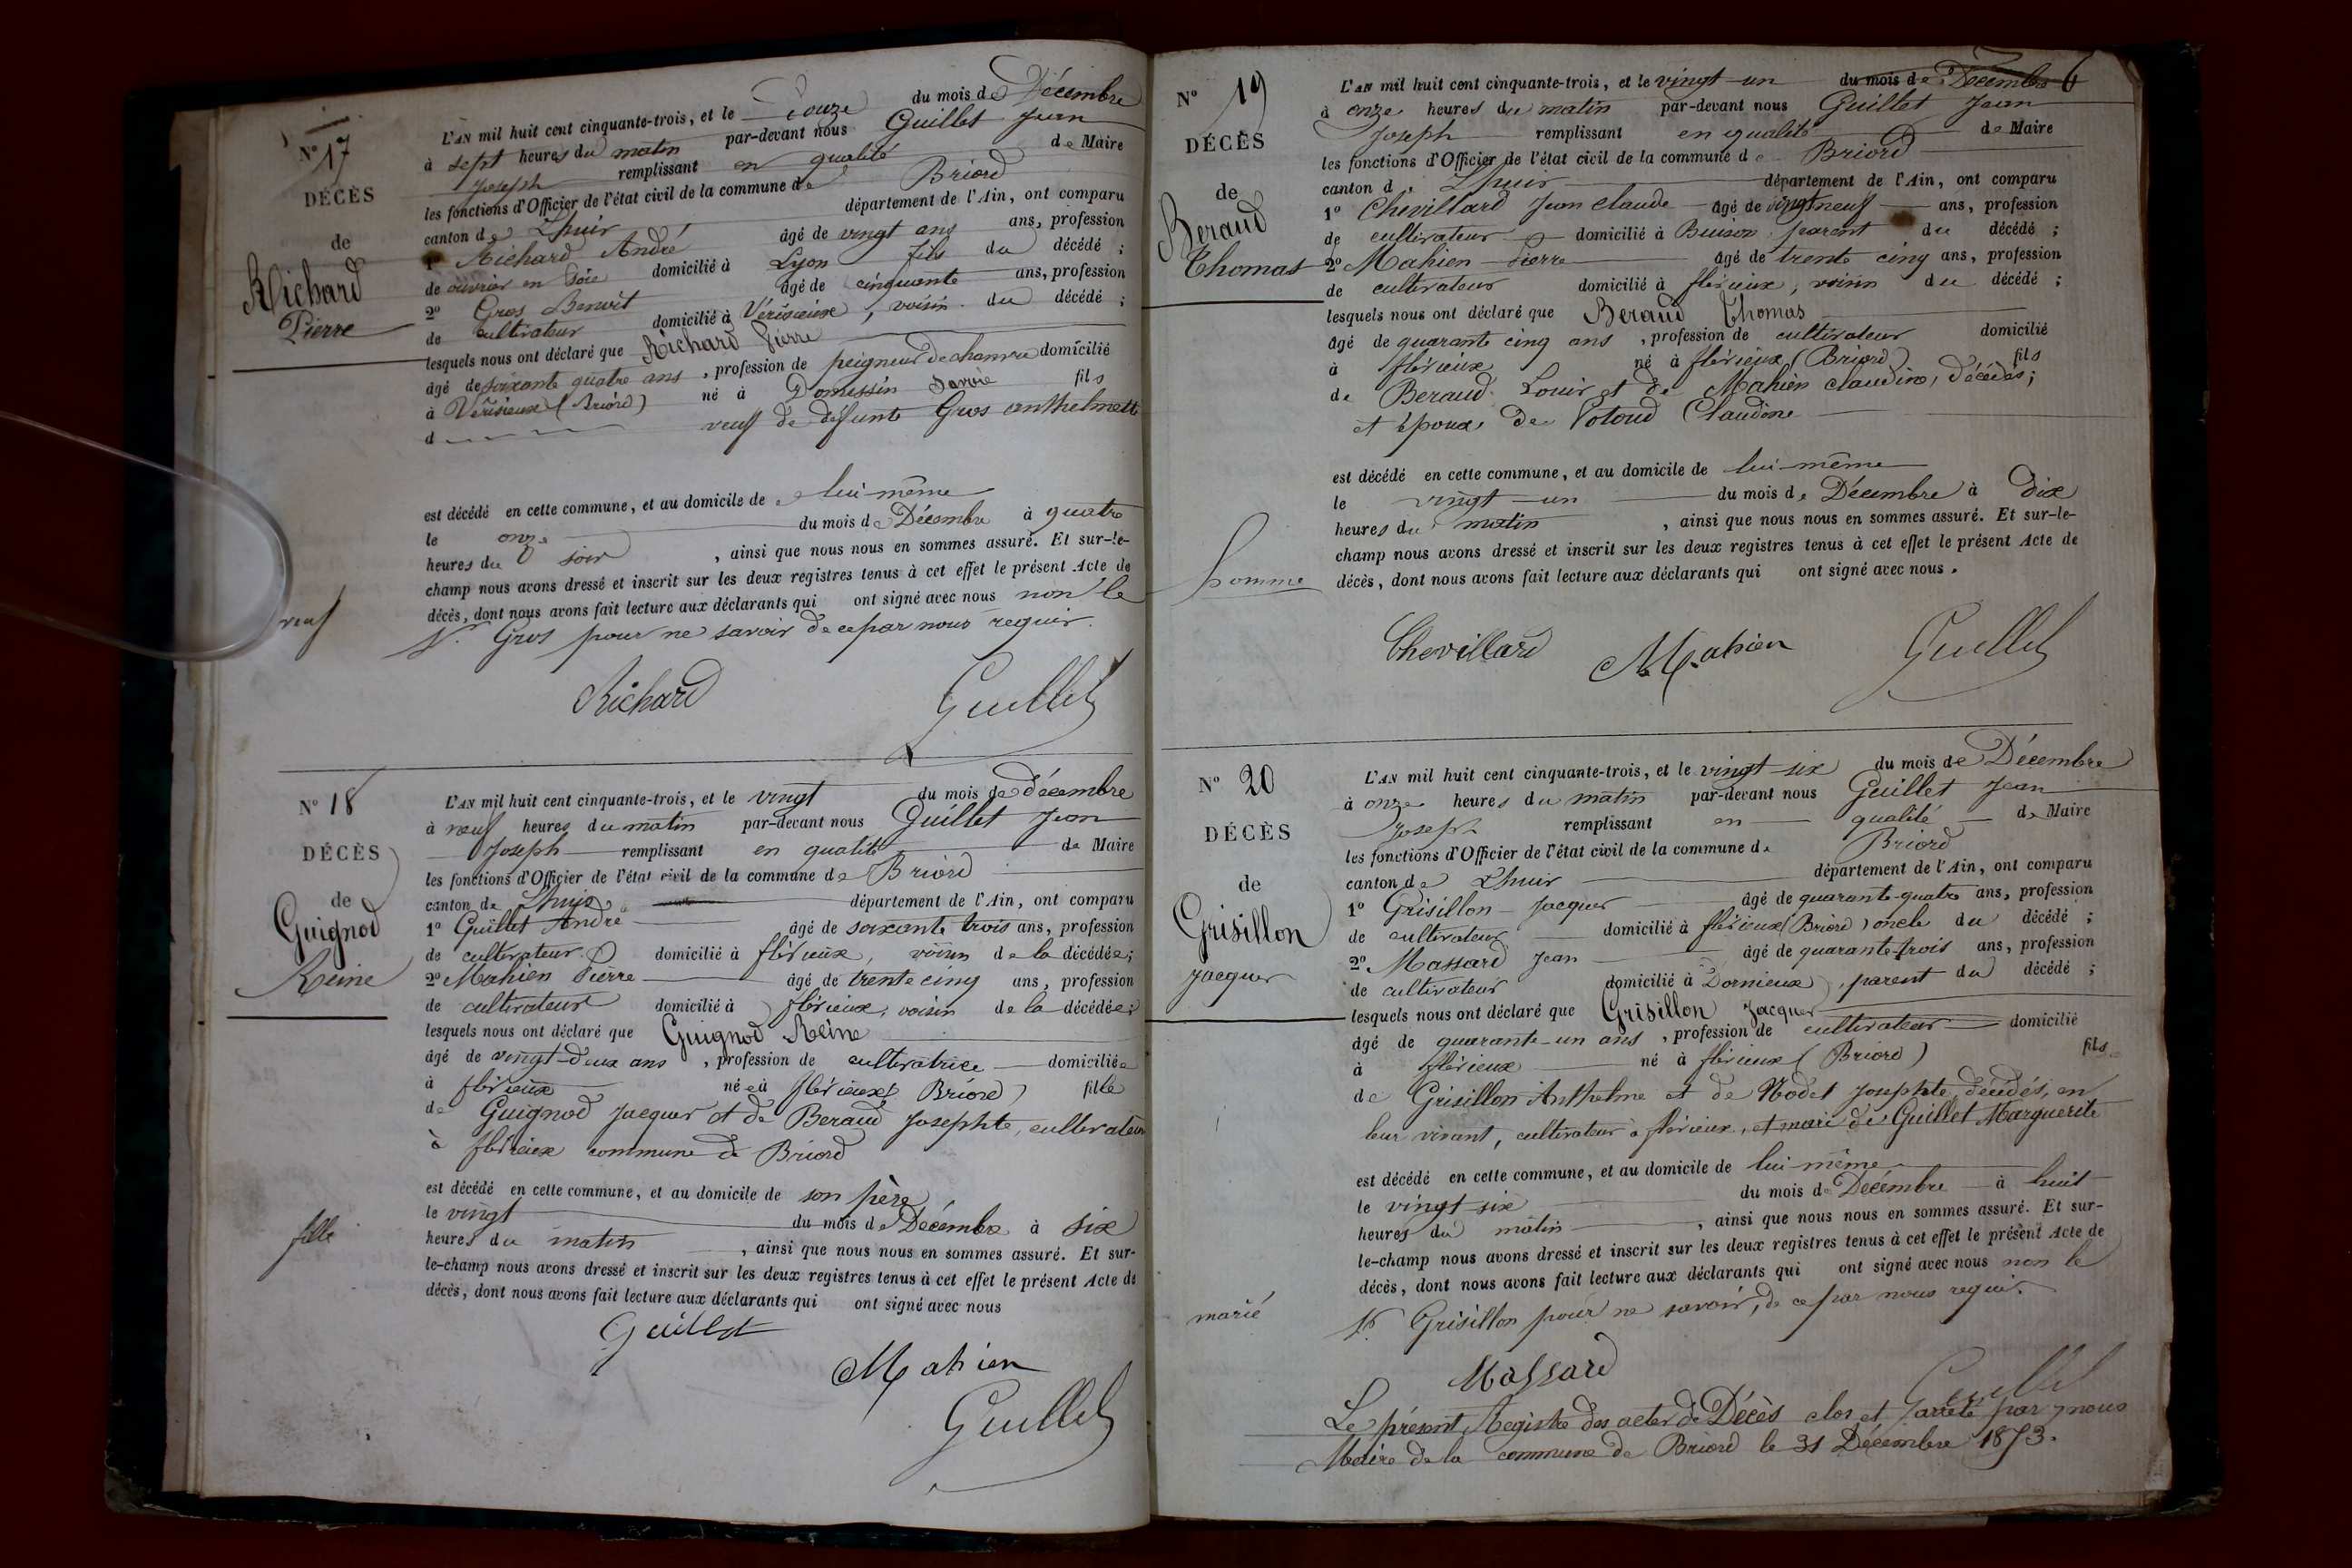 N° 17
DÉCÈS
de
Richard
Pierre
veuf
L'AN mil huit cent cinquante-trois, et le Douze du mois de Décembre
à sept heures du matin par-devant nous Guillet Jean
Joseph remplissant en qualité de Maire
les fonctions d'Officier de l'état civil de la commune de Briord
canton de Lhuis département de l'Ain, ont comparu
1° Richard André âgé de vingt ans ans, profession
de ouvrier en soie domicilié à Lyon fils du décédé ;
2° Gros Benoit âgé de cinquante ans, profession
de cultivateur domicilié à Vérisieux, voisin du décédé ;
lesquels nous ont déclaré que Richard Pierre
âgé de soixante quatre ans, profession de peigneur de chanvre domicilié
à Vérisieux (Briord) né à Domessin Savoie fils
d veuf de défunte Gros anthelmette
est décédé en cette commune, et au domicile de lui-même
le onze du mois de Décembre à quatre
heures du soir, ainsi que nous nous en sommes assuré. Et sur-le-
champ nous avons dressé et inscrit sur les deux registres tenus à cet effet le présent Acte de
décès, dont nous avons fait lecture aux déclarants qui ont signé avec nous non le
Gros pour ne savoir de ce par nous requis.
Richard Guillet
N° 18
DÉCÈS
de
Guignod
Reine
fille
L'AN mil huit cent cinquante-trois, et le vingt du mois de décembre
à neuf heures du matin par-devant nous Guillet Jean
Joseph remplissant en qualité de Maire
les fonctions d'Officier de l'état civil de la commune de Briord
canton de Lhuis département de l'Ain, ont comparu
1° Guillet André âgé de soixante trois ans, profession
de cultivateur domicilié à flérieux, voisin de la décédée ;
2° Mahien Pierre âgé de trente cinq ans, profession
de cultivateur domicilié à flérieux, voisin de la décédée ;
lesquels nous ont déclaré que Guignod Reine
âgé de vingt-deux ans, profession de cultivatrice domiciliée
à flérieux née à flérieux (Briord) fille
de Guignod Jacques et de Beraud Josephte, cultivateurs
à flérieux commune de Briord
est décédé en cette commune, et au domicile de son père
le vingt du mois de Décembre à six
heures du matin, ainsi que nous nous en sommes assuré. Et sur-
le-champ nous avons dressé et inscrit sur les deux registres tenus à cet effet le présent Acte de
décès, dont nous avons fait lecture aux déclarants qui ont signé avec nous
Guillet
Mahien
Guillet
6
N° 19
DÉCÈS
de
Beraud
Thomas
homme
L'AN mil huit cent cinquante-trois, et le vingt-un du mois de Décembre
à onze heures du matin par-devant nous Guillet Jean
Joseph remplissant en qualité de Maire
les fonctions d'Officier de l'état civil de la commune de Briord
canton d. Lhuis département de l'Ain, ont comparu
1° Chevillard Jean claude âgé de vingt neuf ans, profession
de cultivateur domicilié à Buison parent du décédé ;
2° Mahien Pierre âgé de trente cinq ans, profession
de cultivateur domicilié à flérieux, voisin du décédé ;
lesquels nous ont déclaré que Beraud Thomas
âgé de quarante cinq ans, profession de cultivateur domicilié
à flérieux né à flérieux (Briord) fils
de Beraud Louis et de Mahien claudine, décédés ;
et époux de Potoud Claudine
est décédé en cette commune, et au domicile de lui-même
le vingt-un du mois de Décembre à dix
heures du matin, ainsi que nous nous en sommes assuré. Et sur-le-
champ nous avons dressé et inscrit sur les deux registres tenus à cet effet le présent Acte de
décès, dont nous avons fait lecture aux déclarants qui ont signé avec nous.
Chevillard Mahien Guillet
N° 20
DÉCÈS
de
Grisillon
Jacques
marié
L'AN mil huit cent cinquante-trois, et le vingt-six du mois de Décembre
à onze heures du matin par-devant nous Guillet Jean
Joseph remplissant en qualité de Maire
les fonctions d'Officier de l'état civil de la commune de Briord
canton de Lhuis département de l'Ain, ont comparu
1° Grisillon Jacques âgé de quarante-quatre ans, profession
de cultivateur domicilié à flérieux (Briord) oncle du décédé ;
2° Massard Jean âgé de quarante-trois ans, profession
de cultivateur domicilié à Dornieux, parent du décédé ;
lesquels nous ont déclaré que Grisillon Jacques
âgé de quarante-un ans, profession de cultivateur domicilié
à flérieux né à flérieux (Briord) fils
de Grisillon Anthelme et de Nodet Josephte, décédés, en
leur vivant, cultivateur à flérieux, et mari de Guillet Marguerite
est décédé en cette commune, et au domicile de lui-même
le vingt-six du mois de Décembre à huit
heures du matin, ainsi que nous nous en sommes assuré. Et sur-
le-champ nous avons dressé et inscrit sur les deux registres tenus à cet effet le présent Acte de
décès, dont nous avons fait lecture aux déclarants qui ont signé avec nous non le
Grisillon pour ne savoir, de ce par nous requis.
Massard Guillet
Le présent Registre des actes de Décès clos et arrêté par nous
Maire de la commune de Briord le 31 Décembre 1853.